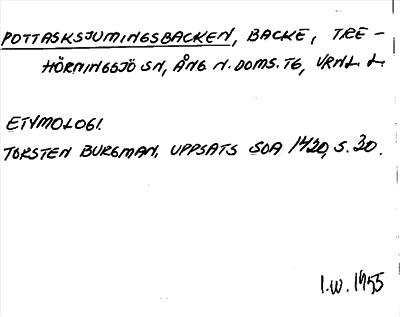 POTTASKSJUMINGSBACKEN, BACKE, TRE-
HÖRNINGSJÖ SN, ÅNG. N. DOMS. TG, VRNL. L.
ETYMOLOGI.
TORSTEN BURGMAN, UPPSATS SOA 1420, S. 30.
I.W. 1955